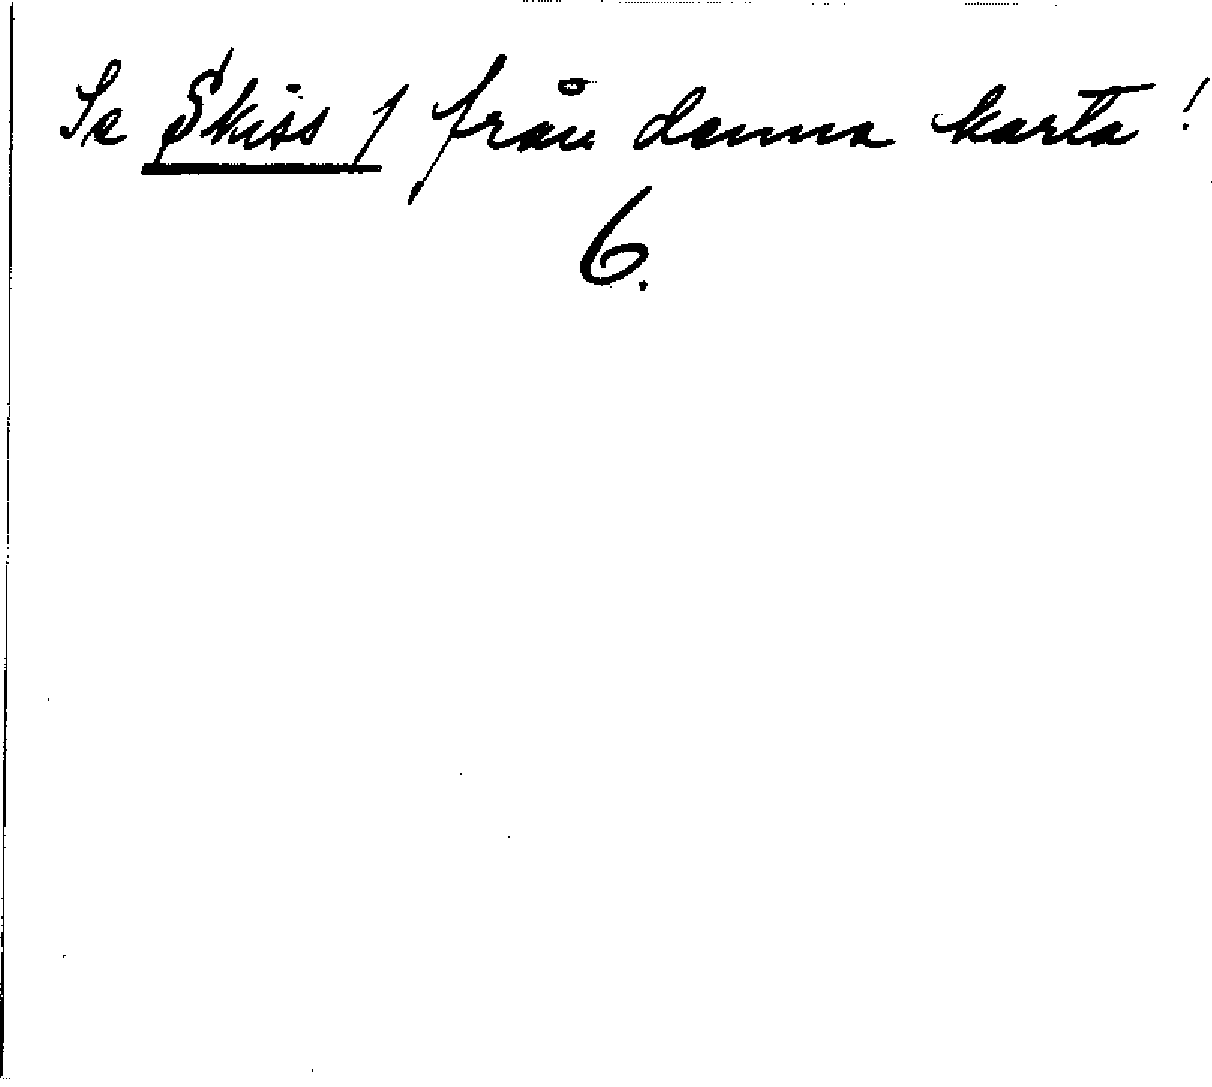 Se Skiss 1 från denna karta!
6.